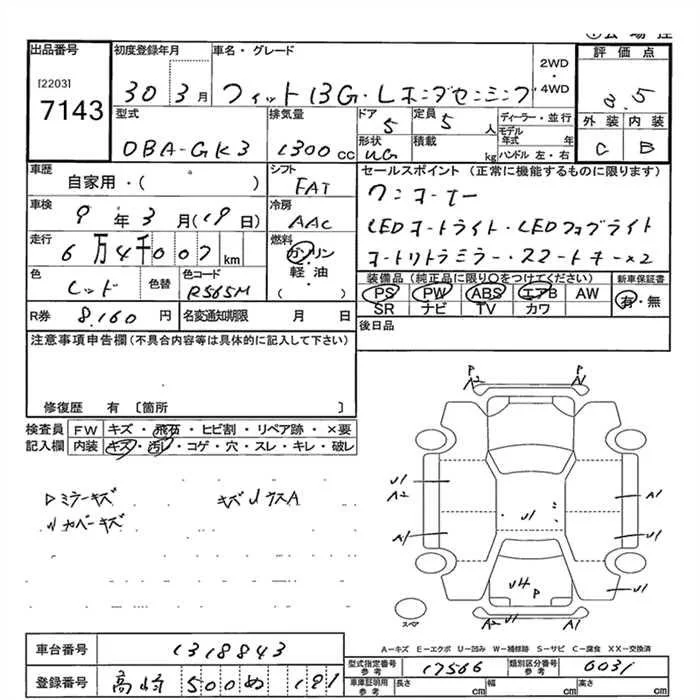 出品番号
[2203]
7143
初度登録年月
30 3月
車名・グレード
フィット 13G・Lホンダセンシング
2WD・4WD
評価点
3.5
外装 内装
C B
型式
DBA-GK3
排気量
1300 CC
ドア
5
定員
5 人
形状
積載
kg
ディーラー・並行
モデル年式 年
ハンドル 左・右
車歴
自家用・( )
シフト
FAT
車検
9年3月(19日)
冷房
AAC
走行
6万4千007km
燃料
ガソリン
軽油
( ・ )
色
レッド
色替
色コード
R565M
R券 8,160 円
名変通知期限 月 日
セールスポイント (正常に機能するものに限ります)
ワンオーナー
LEDオートライト・LEDフォグライト
オートリトラミラー・スマートキー×2
装備品 (純正品に限り○をつけてください)
新車保証書
PS PW ABS エアB AW
有・無
SR ナビ TV カワ
後日品
注意事項申告欄 (不具合内容等は具体的に記入して下さい)
修復歴 有 〔箇所 〕
検査員 FW キズ・飛石・ヒビ割・リペア跡・×要
記入欄 内装 キズ・汚レ・コゲ・穴・スレ・キレ・破レ
ミラーキズ
カバーキズ
P P
A2 A1
U1
A2
A1
U1
A1
A1
U1
U4
P
U1
A2 A1
スペア
A-キズ E-エクボ U-凹み W-補修跡 S-サビ C-腐食 XX-交換済
車台番号 1318843
型式指定番号 参考 17566
類別区分番号 参考 0031
登録番号 高崎 500 め 181
車庫証明用 参考 長さ cm 幅 cm 高さ cm